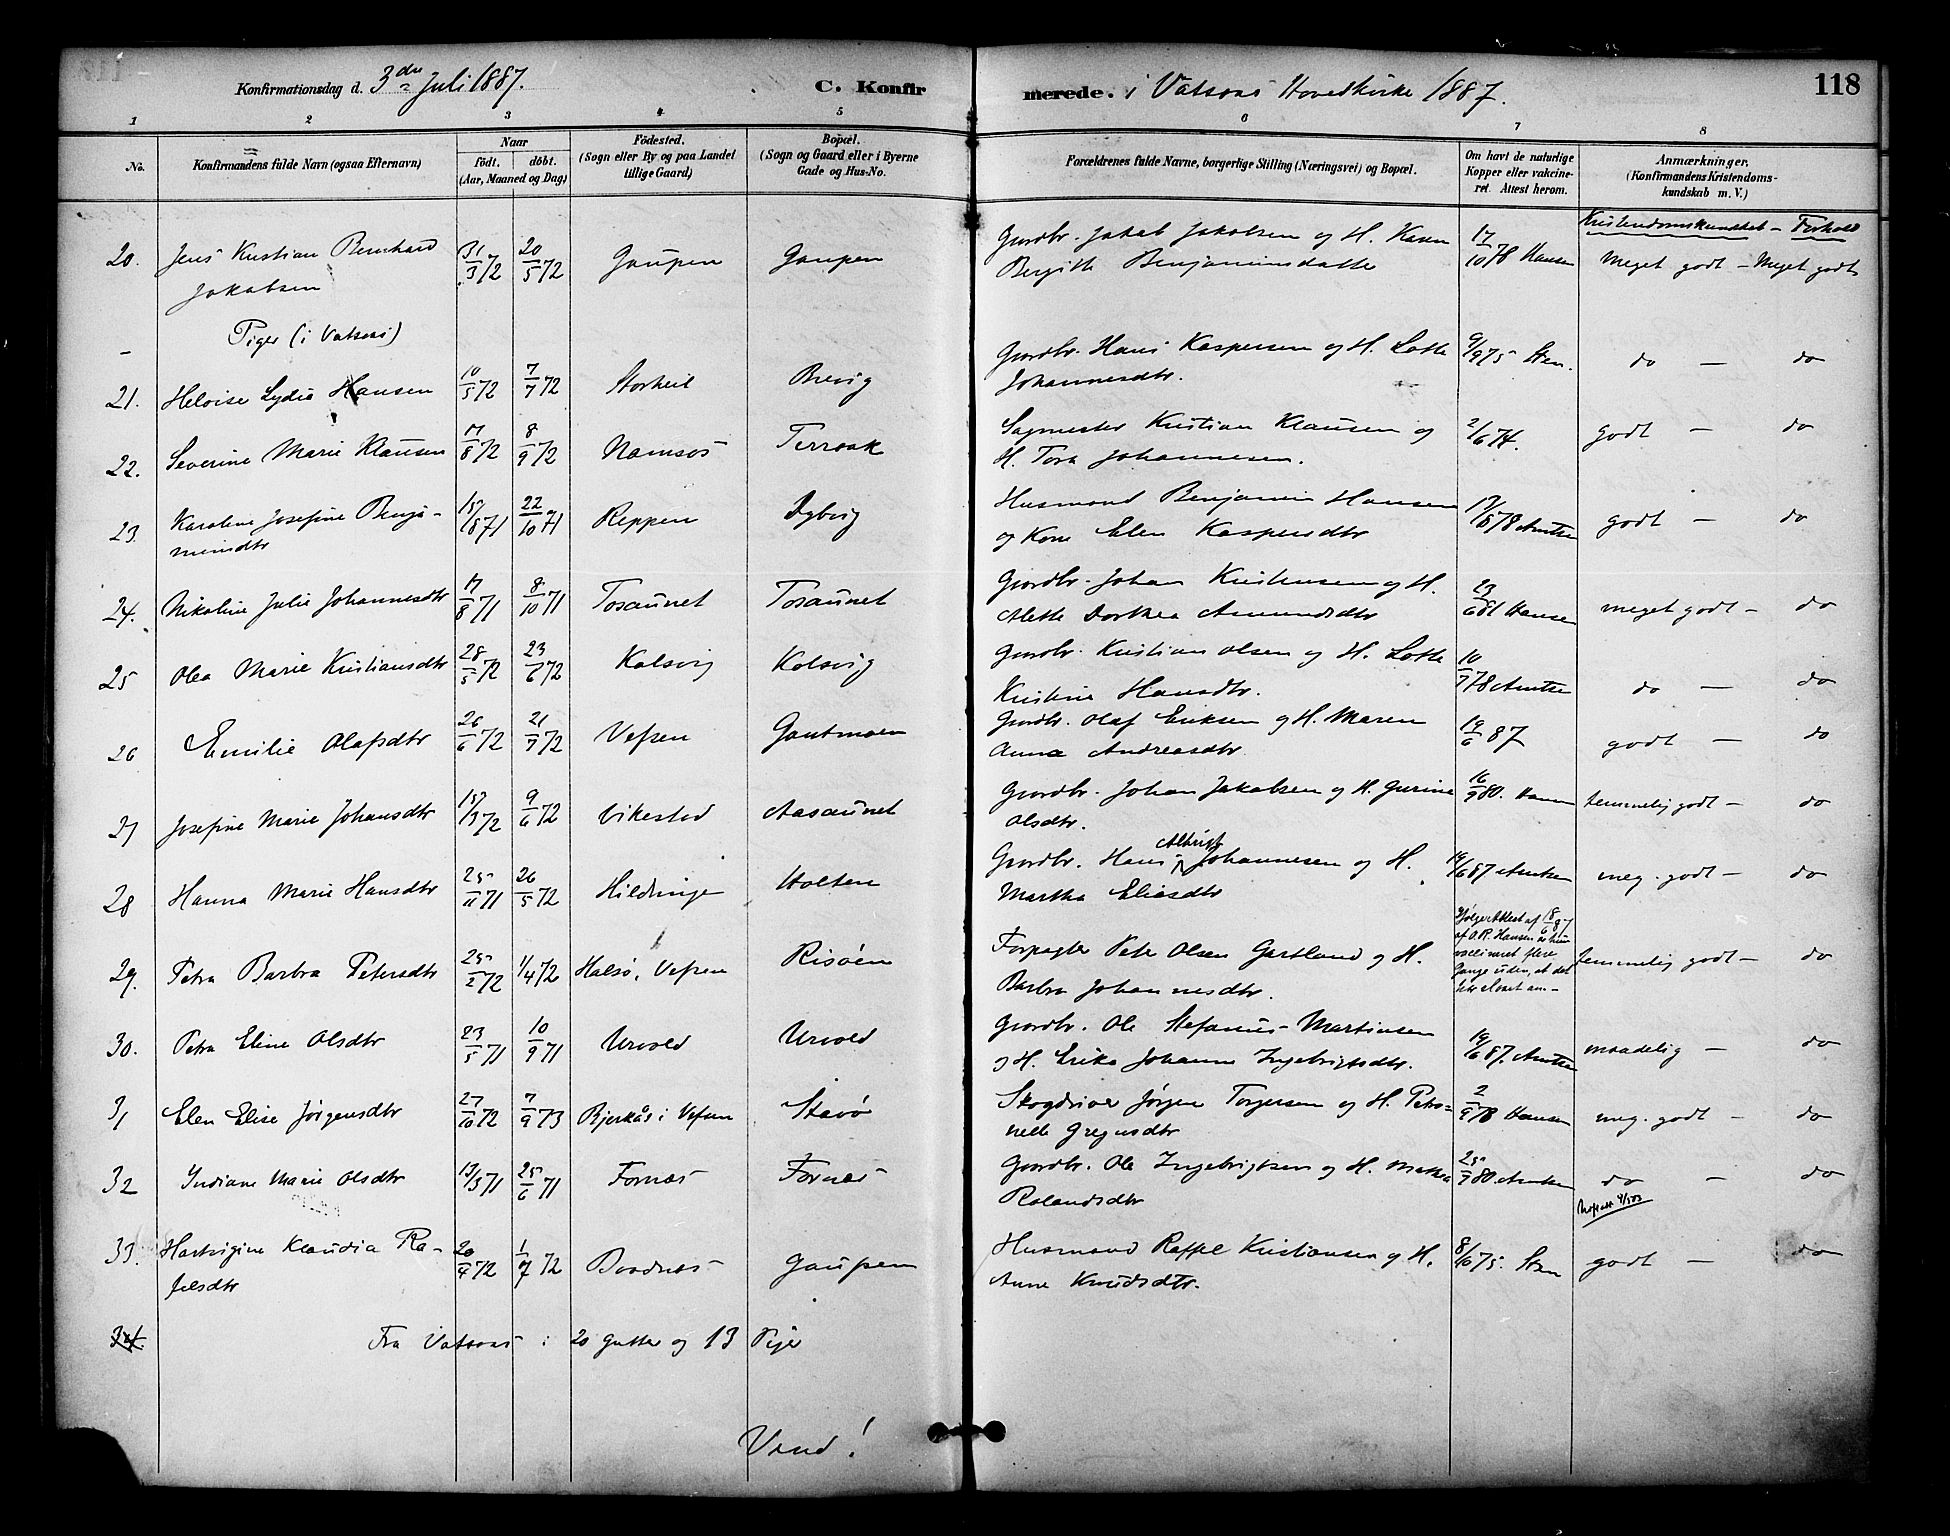 118
Konfirmationsdag d. 3die Juli 1887. C. Konfirmerede. i Vatsaas Hovedkirke 1887.
1 2 3 4 5 6 7 8
No. Konfirmandens fulde Navn (ogsaa Efternavn) Naar födt. döbt. (Aar, Maaned og Dag) Födested. (Sogn eller By og paa Landet tillige Gaard) Bopæl. (Sogn og Gaard eller i Byerne Gade og Hus-No. Forældrenes fulde Navne, borgerlige Stilling (Næringsvei) og Bopæl. Om havt de naturlige Kopper eller vakcineret. Attest herom. Anmærkninger. (Konfirmandens Kristendomskundskab m. V.)
Kristendomskundskab – Forhold
20. Jens Kristian Bernhard 31/3 72 20/5 72 Gaupen Gaupen Gaardbr. Jakob Jakobsen og H. Karen 17/10 78 Hansen Meget godt – Meget godt
Jakobsen Bergitte Benjaminsdatte
Piger (i Vatsaas)
21. Heloise Lydia Hansen 10/5 72 7/7 72 Storheil Brevig Gaardbr. Hans Kaspersen og H. Lotte 9/9 75 Sten. do – do
Johannesdtr.
22. Severine Marie Klausen 17/8 72 8/9 72 Namsos Terraak Sagmester Kristian Klausen og 2/6 74. godt – do
H. Tora Johannesen.
23. Karoline Josefine Benja- 15/8 71 22/10 71 Reppen Dybvig Husmand Benjamin Hansen 17/6 78 Arntsen godt – do
minsdtr og Kone Elen Kaspersdtr
24. Nikoline Julie Johannesdtr 17/8 71 8/10 71 Tosaunet Tosaunet Gaardbr. Johan Kristensen og H. 23/6 81 Hansen meget godt – do
Alette Dorthea Amundsdtr
25 Olea Marie Kristiansdtr 28/5 72 23/6 72 Kalsvig Kolsvig Gaardbr. Kristian Olsen og H. Lotte 10/7 78 Arntsen do – do
Kristine Hansdtr.
26 Emilie Olafsdtr 26/6 72 21/7 72 Vefsen Gautmoen Gaardbr. Olaf Eriksen og H. Maren 19/6 87 godt – do
Anna Andreasdtr.
27 Josefine Marie Johansdtr 15/3 72 9/6 72 Vikestad Aasaunet Gaardbr. Johan Jakobsen og H. Gurine 16/9 80. Hansen temmelig godt – do
Olsdtr.
28 Hanna Marie Hansdtr 25/11 71 26/5 72 Hildringe Holten Gaardbr. Hans Albrigt Johannesen og H. 19/6 87 Arntsen meg. godt – do
Martha Eliasdtr
29. Petra Barbra Petersdtr 25/2 72 1/4 72 Halsø, Vefsen Risöen Forpagter Peter Olsen Gartland og H. Ifølge Attest af 18/6 87 af O.R. Hansen er hun vaccineret flere Gange uden, at det har slaaet an. – temmelig godt – do
Barbra Johannesdtr.
30. Petra Eline Olsdtr 23/5 71 10/9 71 Urvold Urvold Gaardbr. Ole Stefanus Martinsen 19/6 87. Arntsen maadelig – do
og H. Erika Johanna Ingebrigtsdtr.
31 Elen Elise Jørgensdtr 27/10 72 7/9 73 Bjerkås i Vefsen Stavø Skogdriver Jørgen Torgersen og H. Petro- 2/9 78 Hansen meg. godt – do
nelle Gregusdtr
32 Indiane Marie Olsdtr 13/3 71 25/6 71 Fornæs Fornæs Gaardbr. Ole Ingebrigtsen og H. Martha 25/9 80 Arntsen do – do
Rolandsdtr
33. Hartvigine Klaudia Ra- 20/4 72 1/7 72 Bordnæs Gaupen Husmand Raffel Kristiansen og H. 8/6 75. Sten godt – do
felsdtr Anne Knudsdtr.
34. Fra Vatsaas : 20 Gutter og 13 Piger
Vend!